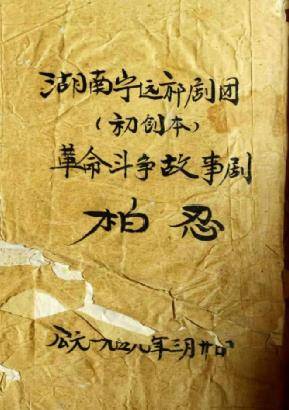 湖南宁远祁剧团
(初创本)
革命斗争故事剧
柏忍
公元一九五八年三月廿日